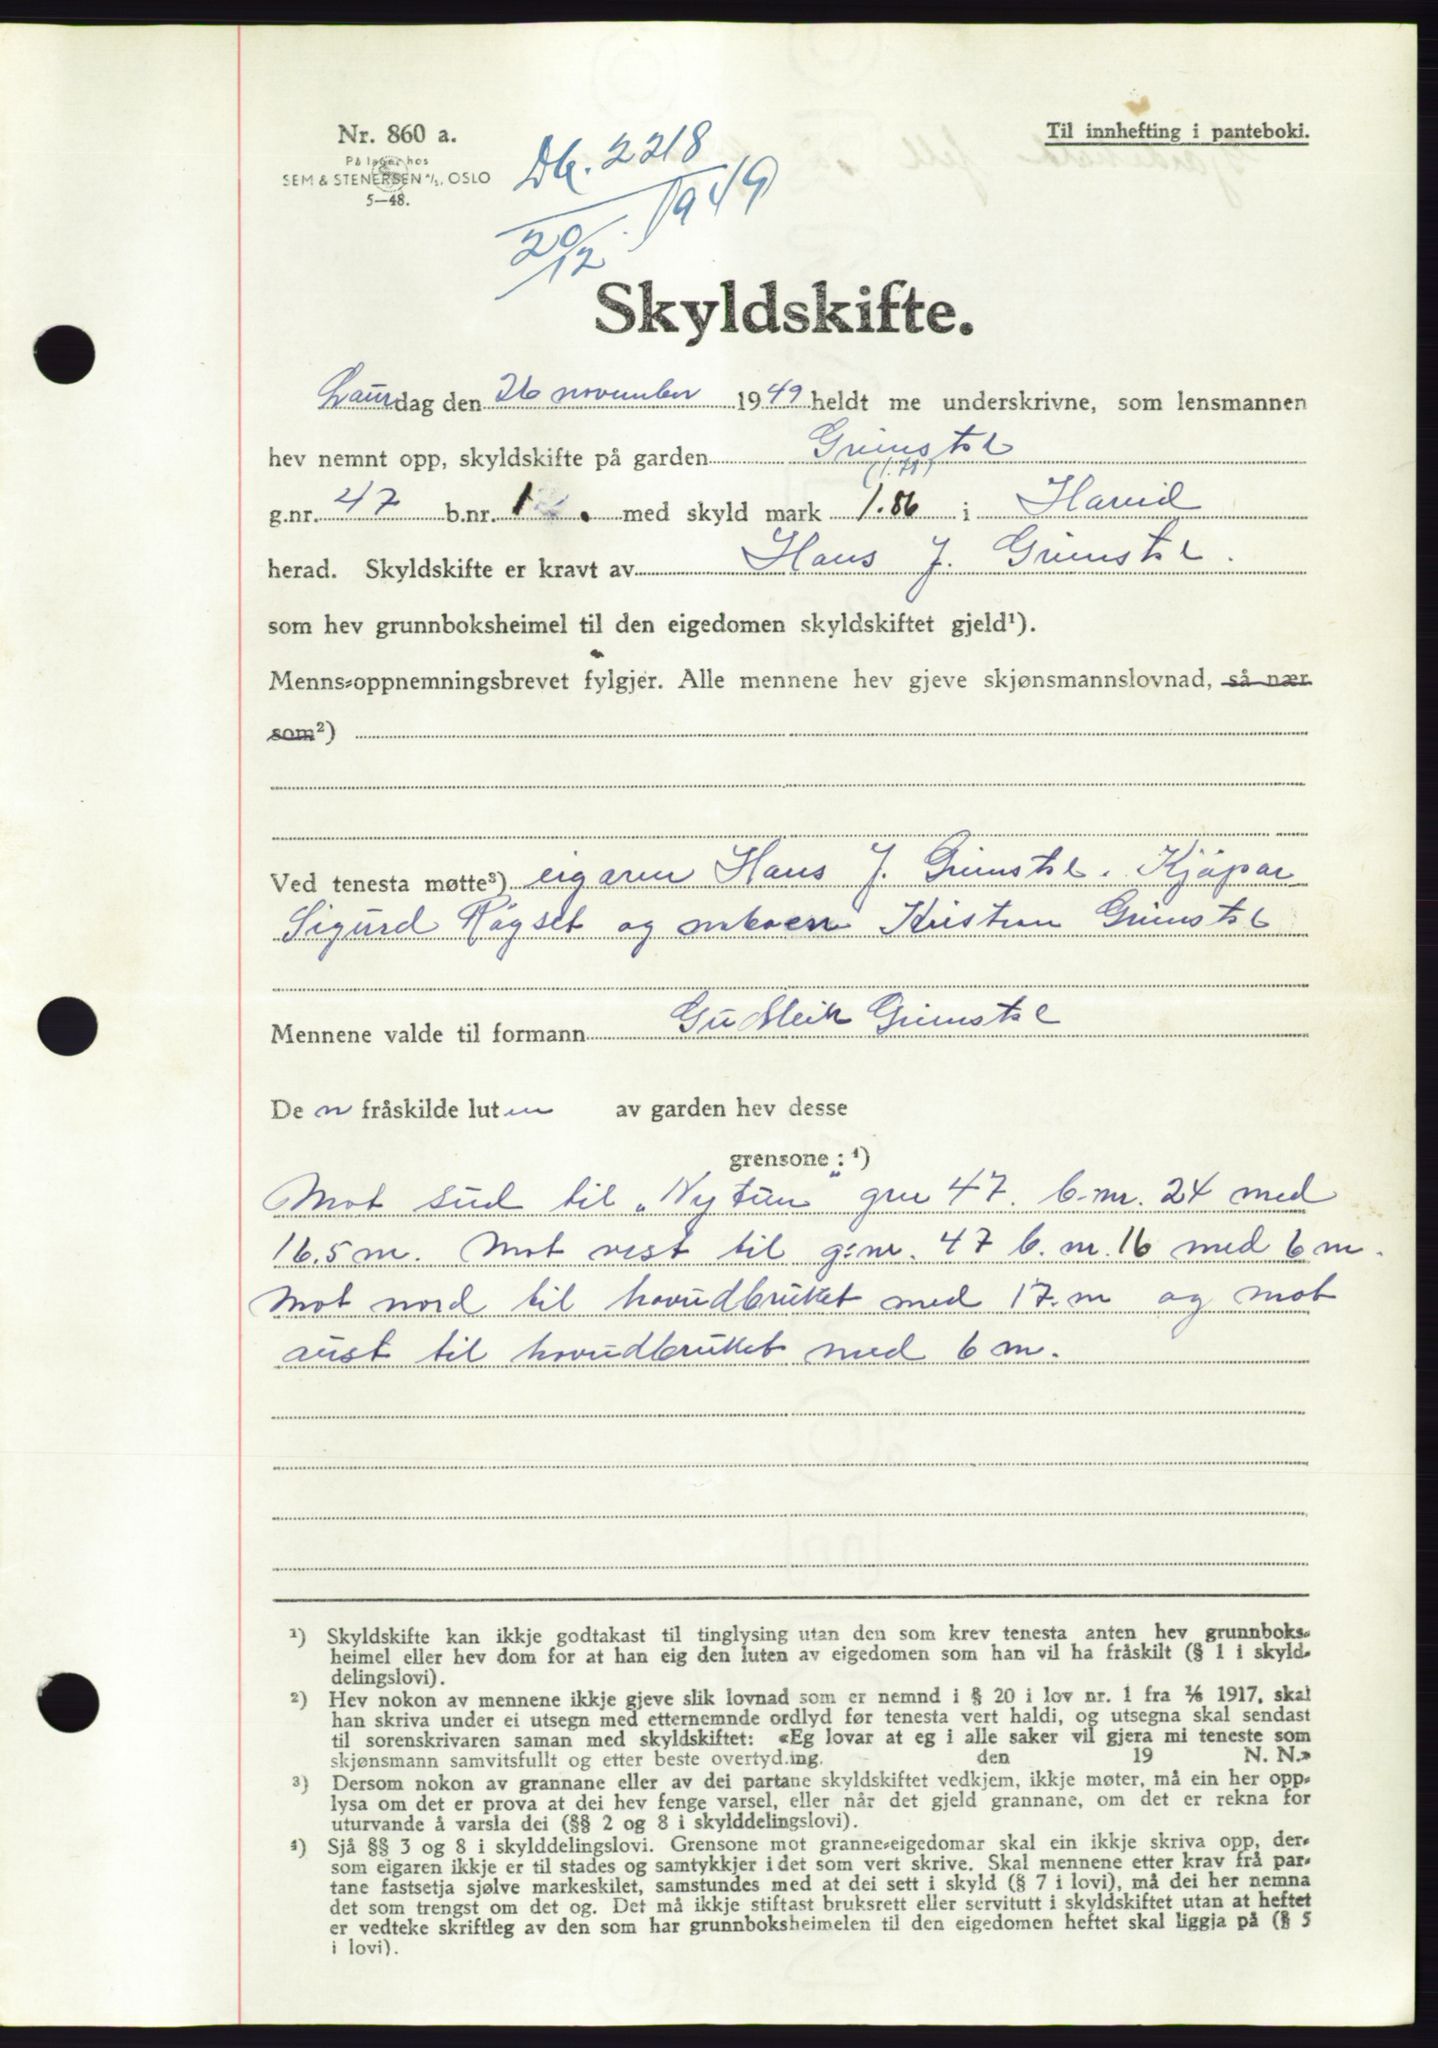 Nr. 860 a.
På lager hos
SEM & STENERSEN A/S, OSLO
5—48.
Dk. 2218
20/12. 1949
Til innhefting i panteboki.
Skyldskifte.
Laurdag den 26 november 1949 heldt me underskrivne, som lensmannen
hev nemnt opp, skyldskifte på garden Grimstad
(1.78)
g.nr. 47 b.nr. 1 med skyld mark 1.86 i Hareid
herad. Skyldskifte er kravt av Hans J. Grimstad.
som hev grunnboksheimel til den eigedomen skyldskiftet gjeld¹).
Menns-oppnemningsbrevet fylgjer. Alle mennene hev gjeve skjønsmannslovnad, så nær
som²)
Ved tenesta møtte³) eigaren Hans J. Grimstad. Kjøpar
Sigurd Røgset og naboen Kristian Grimstad
Mennene valde til formann Gudleik Grimstad
De n fråskilde luten av garden hev desse
grensone: ⁴)
Mot sud til „Nytun" gnr 47. b.nr. 24 med
16,5 m. Mot vest til g.nr. 47 b.nr. 16 med 6 m.
Mot nord til hovudbruket med 17 m og mot
aust til hovudbruket med 6 m.
¹) Skyldskifte kan ikkje godtakast til tinglysing utan den som krev tenesta anten hev grunnboks-
heimel eller hev dom for at han eig den luten av eigedomen som han vil ha fråskilt (§ 1 i skyld-
delingslovi).
²) Hev nokon av mennene ikkje gjeve slik lovnad som er nemnd i § 20 i lov nr. 1 fra 1/6 1917, skal
han skriva under ei utsegn med etternemnde ordlyd før tenesta vert haldi, og utsegna skal sendast
til sorenskrivaren saman med skyldskiftet: «Eg lovar at eg i alle saker vil gjera mi teneste som
skjønsmann samvitsfullt og etter beste overtyding. den 19 N. N.»
³) Dersom nokon av grannane eller av dei partane skyldskiftet vedkjem, ikkje møter, må ein her opp-
lysa om det er prova at dei hev fenge varsel, eller når det gjeld grannane, om det er rekna for
uturvande å varsla dei (§§ 2 og 8 i skylddelingslovi).
⁴) Sjå §§ 3 og 8 i skylddelingslovi. Grensone mot granne-eigedomar skal ein ikkje skriva opp, der-
som eigaren ikkje er til stades og samtykkjer i det som vert skrive. Skal mennene etter krav frå par-
tane fastsetja sjølve markeskilet, samstundes med at dei sett i skyld (§ 7 i lovi), må dei her nemna
det som trengst om det og. Det må ikkje stiftast bruksrett eller servitutt i skyldskiftet utan at heftet
er vedteke skriftleg av den som har grunnboksheimelen til den eigedomen heftet skal liggja på (§ 5
i lovi).